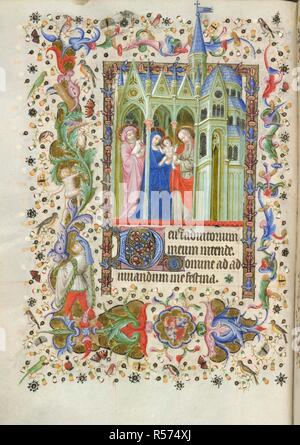 Deus in adiutorium
meum intende.
Domine ad ad
iuvandum me festina.
alamy
R574XJ
www.alamy.com